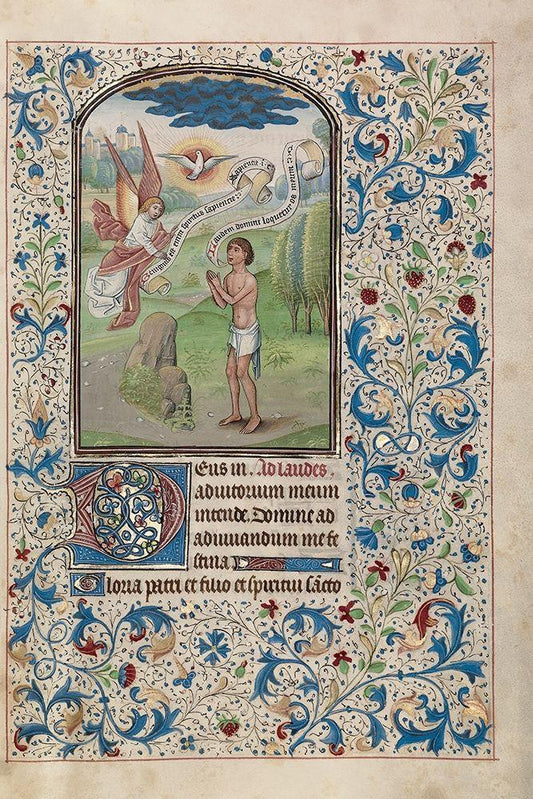 sapiencie
Benignus est enim spiritus sapiencie
Laudem domini loquetur os meum
Deus in. Ad laudes.
adiutorium meum
intende. Domine ad
adiuuandum me fe
stina
Gloria patri et filio et spiritui sācto